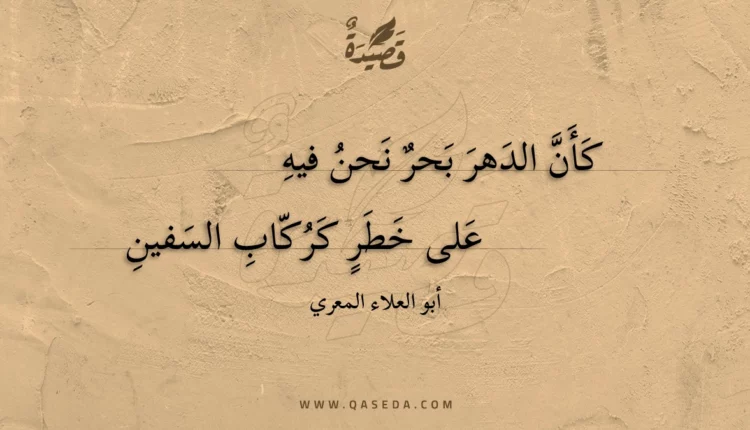 قَصِيدَةٌ
كَأَنَّ الدَهرَ بَحرٌ نَحنُ فيهِ
عَلى خَطَرٍ كَرُكّابِ السَفينِ
أبو العلاء المعري
WWW.QASEDA.COM